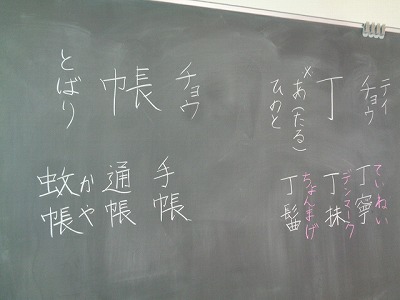 テイ
チョウ
丁
×あ(たる)
ひのと
ていねい
丁寧
デンマーク
丁抹
ちょんまげ
丁髷
チョウ
帳
とばり
手帳
通帳
かや
蚊帳